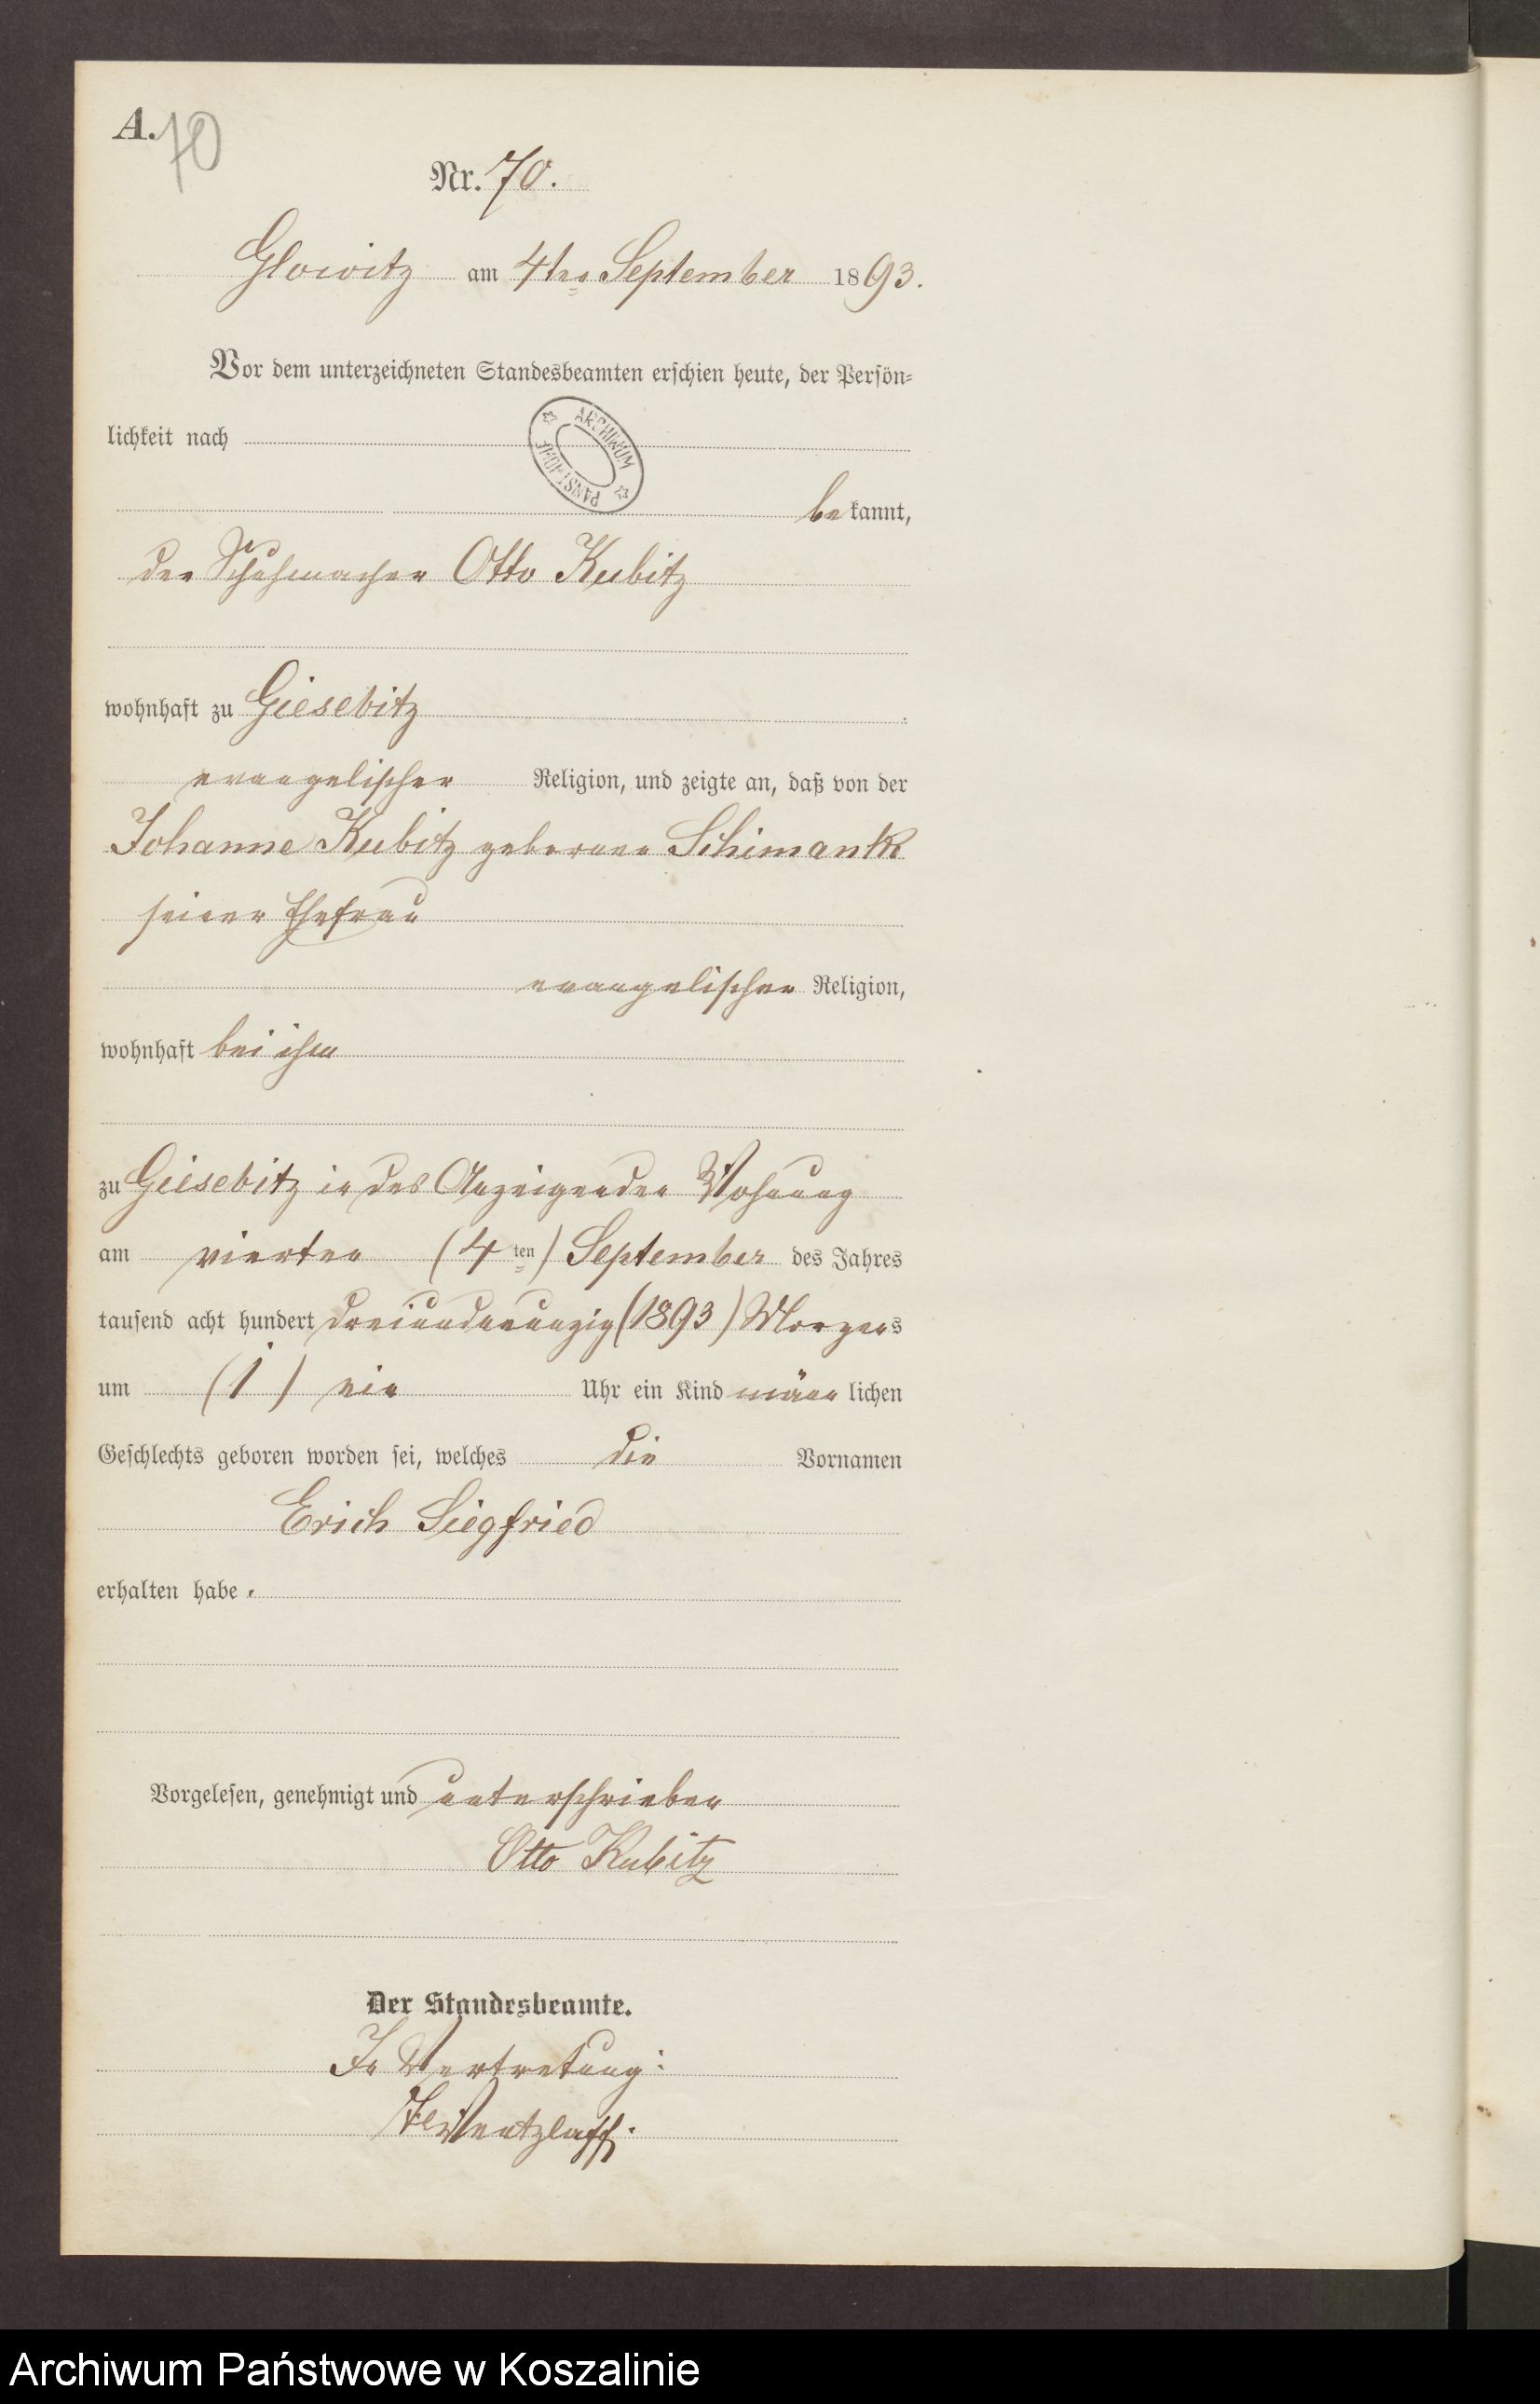 A.
70
Nr. 70.
Glowitz am 4ten September 1893.
Vor dem unterzeichneten Standesbeamten erschien heute, der Persön-
lichkeit nach
ARCHIWUM PAŃSTWOWE
bekannt,
der Schuhmacher Otto Kubitz
wohnhaft zu Giesebitz
evangelischer Religion, und zeigte an, daß von der
Johanne Kubitz geborene Schimank
seiner Ehefrau
evangelischer Religion,
wohnhaft bei ihm
zu Giesebitz in des Anzeigenden Wohnung
am vierten (4ten) September des Jahres
tausend acht hundert dreiundneunzig (1893) Morgens
um (1) ein Uhr ein Kind männlichen
Geschlechts geboren worden sei, welches die Vornamen
Erich Siegfried
erhalten habe.
Vorgelesen, genehmigt und unterschrieben
Otto Kubitz
Der Standesbeamte.
In Vertretung:
Wentzlaff.
Archiwum Państwowe w Koszalinie